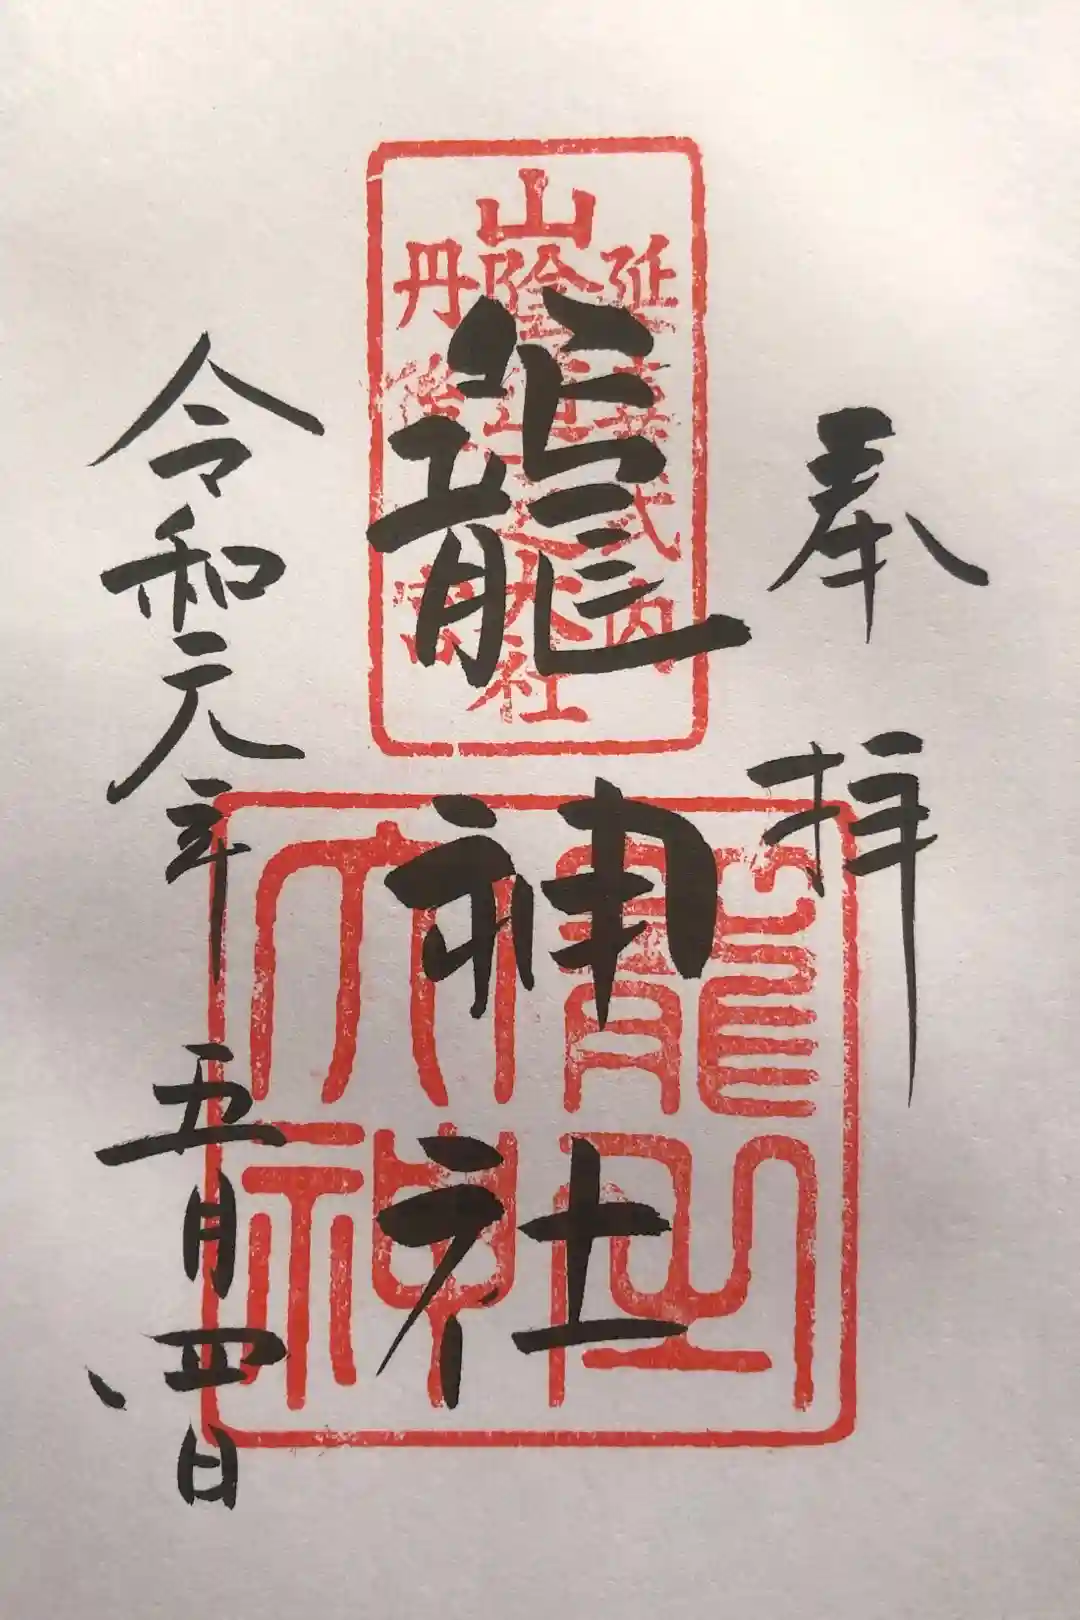 奉拝
延喜式内
山陰道一之大社
丹後一宮
籠神社
令和元年五月四日